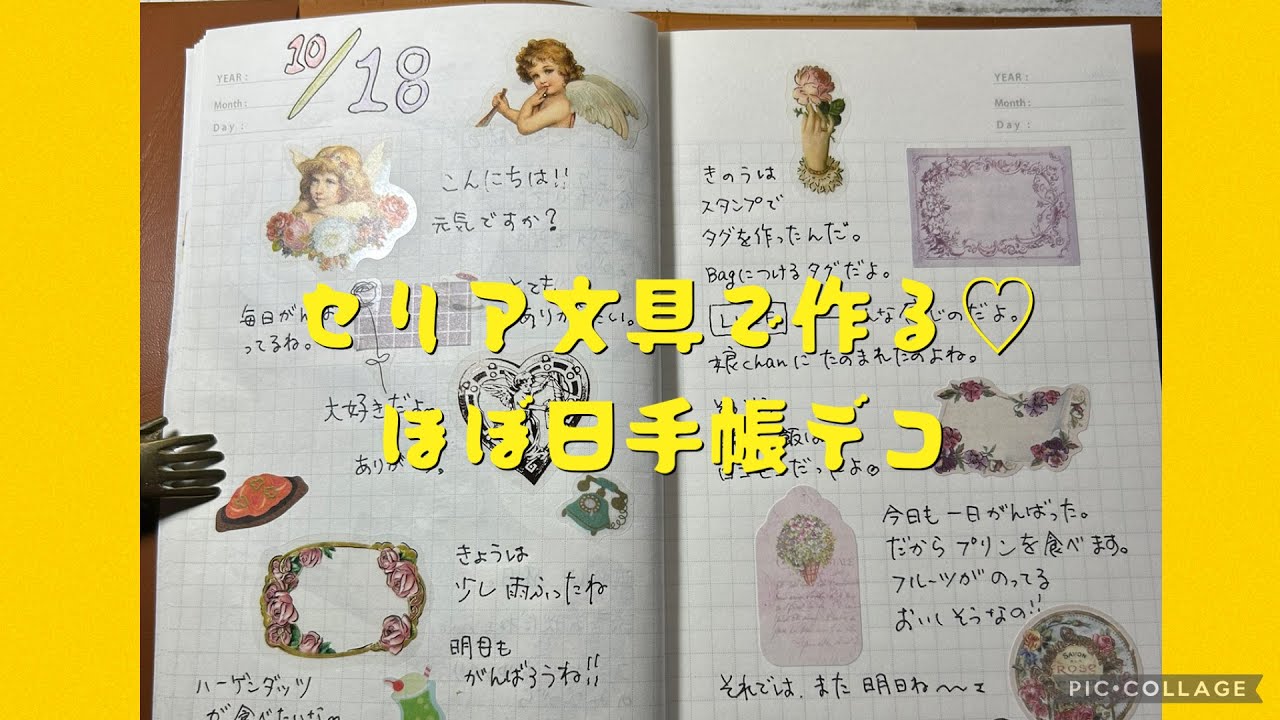 10/18
YEAR :
Month :
Day :
こんにちは!!
元気ですか?
毎日がんば
ってるね。
とても
ありがたい。
大好きだよ
ありが
。
きょうは
少し雨ふったね
明日も
がんばろうね!!
ハーゲンダッツ
が食べたいな
YEAR :
Month :
Day :
きのうは
スタンプで
タグを作ったんだ。
Bagにつけるタグだよ。
じのだよ。
娘chanにたのまれたのよね。
飯は
だったよ。
今日も一日がんばった。
だからプリンを食べます。
フルーツがのってる
おいしそうなの!!
それでは、また明日ね〜〜
SAVON
ROSE
セリア文具で作る♡
ほぼ日手帳デコ
PIC•COLLAGE